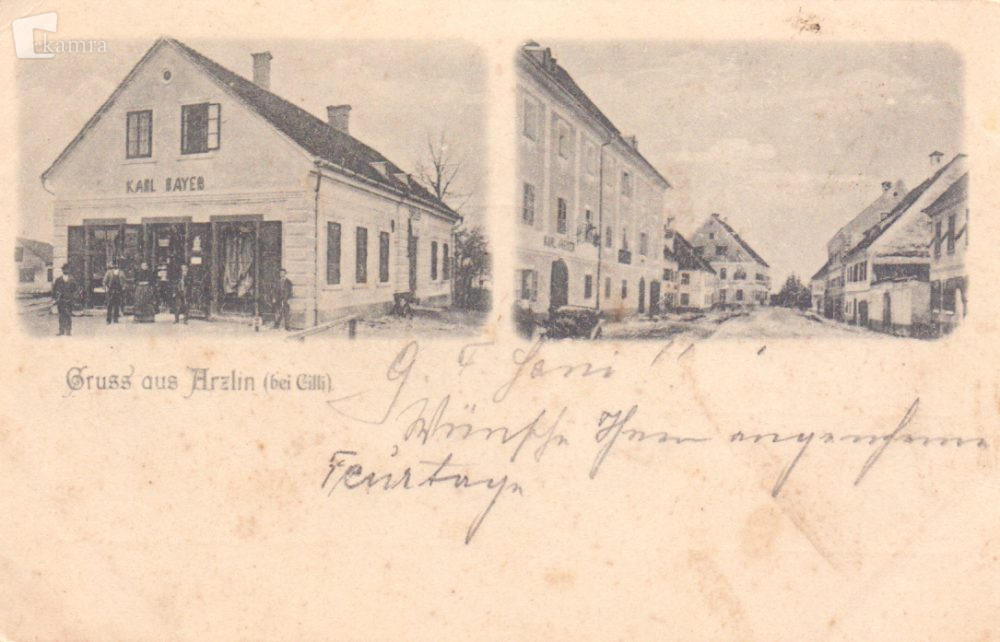 kamra
KARL BAYER
Gruss aus Arzlin (bei Cilli).
G. F.
Wünsche Ihnen angenehme
Feurtage